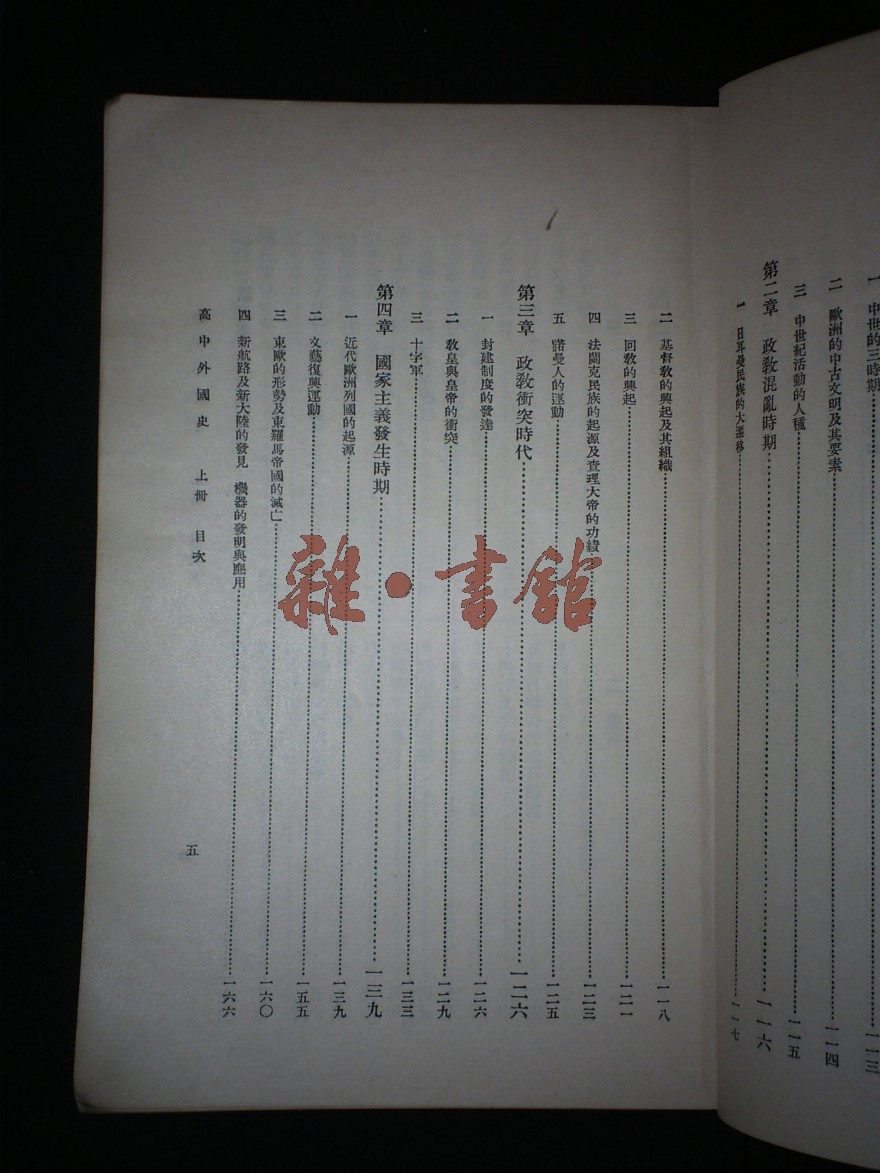 一 中世的三時期 一一三
二 歐洲的中古文明及其要素 一一四
三 中世紀活動的人種 一一五
第二章 政教混亂時期 一一六
一 日耳曼民族的大遷移 一一七
二 基督教的興起及其組織 一一八
三 回教的興起 一二一
四 法蘭克民族的起源及查理大帝的功績 一二三
五 諾曼人的運動 一二五
第三章 政教衝突時代 一二六
一 封建制度的發達 一二六
二 教皇與皇帝的衝突 一二九
三 十字軍 一三三
第四章 國家主義發生時期 一三九
一 近代歐洲列國的起源 一三九
二 文藝復興運動 一五五
三 東歐的形勢及東羅馬帝國的滅亡 一六〇
四 新航路及新大陸的發見 機器的發明與應用 一六六
高中外國史 上冊 目次 五
雜·書館